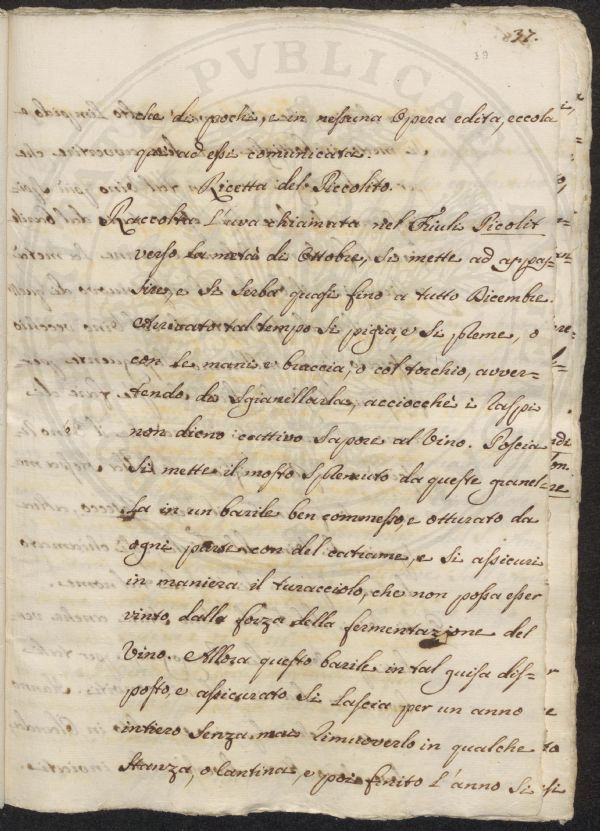 37.
che di pochi, e in nessuna Opera edita, eccola
qual ad essi comunicata.
Ricetta del Piccolito.
Raccolta l'uva chiamata nel Friuli Picolit
verso la metà di Ottobre, si mette ad appas-
sire, e si serba quasi fino a tutto Dicembre.
Arrivato tal tempo si pigia, e si spreme, o
con le mani e braccia, o col torchio, avver-
tendo di sgranellarla, acciocchè i raspi
non dieno cattivo sapore al Vino. Poscia
si mette il mosto spremuto da queste granel-
la in un barile ben commesso, e otturato da
ogni parte con del catrame, e si assicuri
in maniera il turacciolo, che non possa esser
vinto dalla forza della fermentazione del
Vino. Allora questo barile in tal guisa dis-
posto, e assicurato si lascia per un anno
intiero senza mai rimuoverlo in qualche
stanza, o Cantina, e poi finito l'anno si